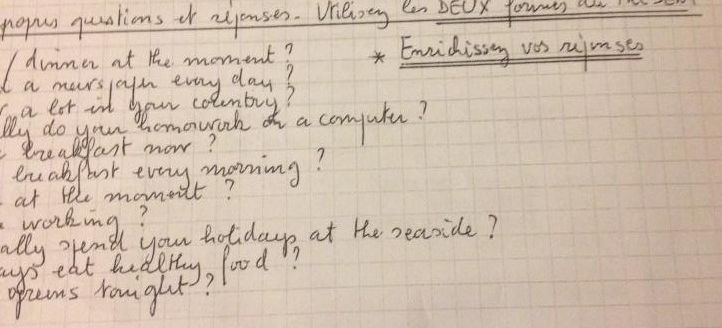 propres questions et réponses. Utilisez les DEUX formes du PRESENT
* Enrichissez vos réponses
dinner at the moment ?
a newspaper every day ?
a lot in your country ?
lly do your homework on a computer ?
breakfast now ?
breakfast every morning ?
at the moment ?
working ?
ally spend your holidays at the seaside ?
ays eat healthy food ?
greens tonight ?